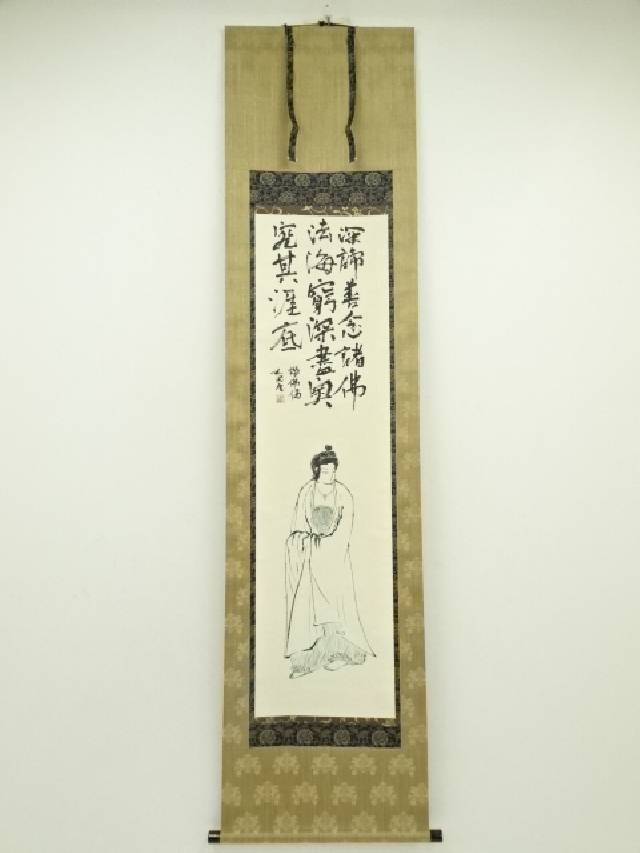 深諦善念諸佛
法海窮深盡奥
究其涯底
讃佛偈